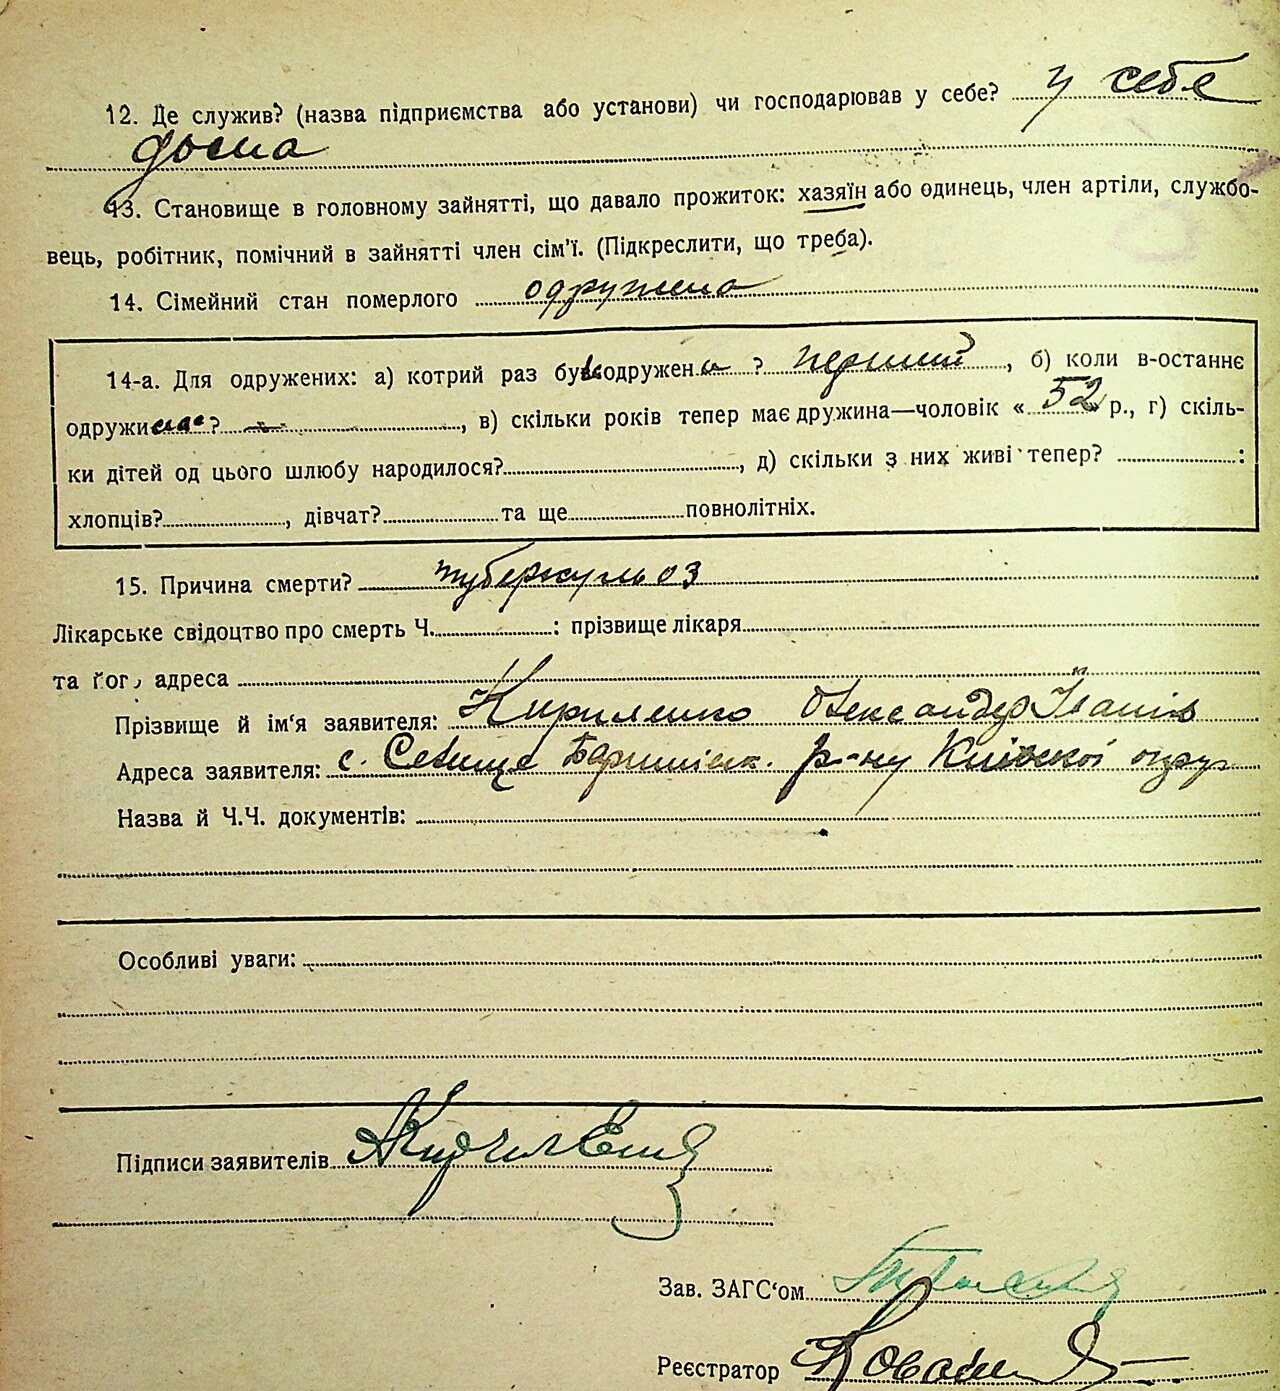 12. Де служив? (назва підприємства або установи) чи господарював у себе? у себе
дома
13. Становище в головному зайнятті, що давало прожиток: хазяїн або одинець, член артіли, службо-
вець, робітник, помічний в зайнятті член сім'ї. (Підкреслити, що треба).
14. Сімейний стан померлого одружена
14-а. Для одружених: а) котрий раз був одружена ? перший, б) коли в-останнє
одружилась? —, в) скільки років тепер має дружина—чоловік « 52 р., г) скіль-
ки дітей од цього шлюбу народилося?, д) скільки з них живі тепер? :
хлопців?, дівчат? та ще повнолітніх.
15. Причина смерти? туберкульоз
Лікарське свідоцтво про смерть Ч. : прізвище лікаря
та його адреса
Прізвище й ім'я заявителя: Кириленко Олександер Іванів
Адреса заявителя: с. Селище Баришівск. р-ну Київської округ
Назва й Ч.Ч. документів:
Особливі уваги:
Підписи заявителів АКириленко
Зав. ЗАГС'ом
Реєстратор